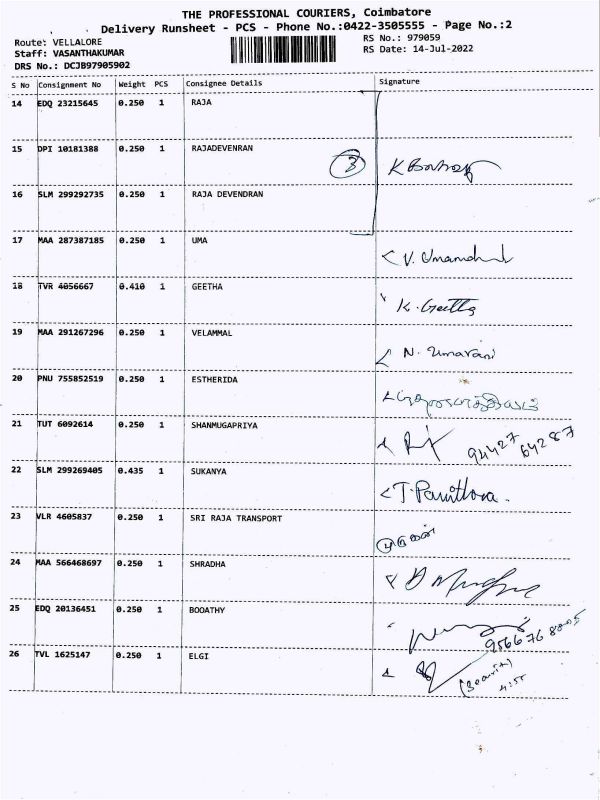 THE PROFESSIONAL COURIERS, Coimbatore
Delivery Runsheet - PCS - Phone No.:0422-3505555 - Page No.:2
Route: VELLALORE
RS No.: 979059
Staff: VASANTHAKUMAR
RS Date: 14-Jul-2022
DRS No.: DCJB97905902
S No Consignment No Weight PCS Consignee Details Signature
14 EDQ 23215645 0.250 1 RAJA
15 DPI 10181388 0.250 1 RAJADEVENRAN 3
16 SLM 299292735 0.250 1 RAJA DEVENDRAN
17 MAA 287387185 0.250 1 UMA V.
18 TVR 4056667 0.410 1 GEETHA K. Geetha
19 MAA 291267296 0.250 1 VELAMMAL N. Umarani
20 PNU 755852519 0.250 1 ESTHERIDA
21 TUT 6092614 0.250 1 SHANMUGAPRIYA 94427 64287
22 SLM 299269405 0.435 1 SUKANYA T.
23 VLR 4605837 0.250 1 SRI RAJA TRANSPORT முருகன்
24 MAA 566468697 0.250 1 SHRADHA
25 EDQ 20136451 0.250 1 BOOATHY
26 TVL 1625147 0.250 1 ELGI